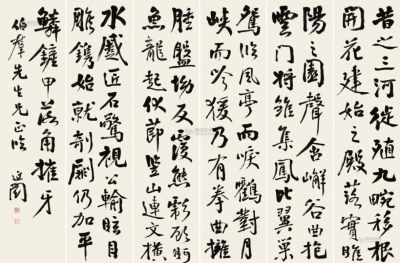 昔之三河徙殖九畹移根
開花建始之殿落實睢
陽之園聲含嶰谷曲抱
雲門將雛集鳳比翼巢
鴛臨風亭而唳鶴對月
峽而吟猨乃有拳曲擁
腫盤坳反覆熊彪顧盼
魚龍起伏節竪山連文橫
水蹙匠石驚視公輸眩目
雕鐫始就剞劂仍加平
鱗鏟甲落角摧牙
伯群先生兄正 延闓